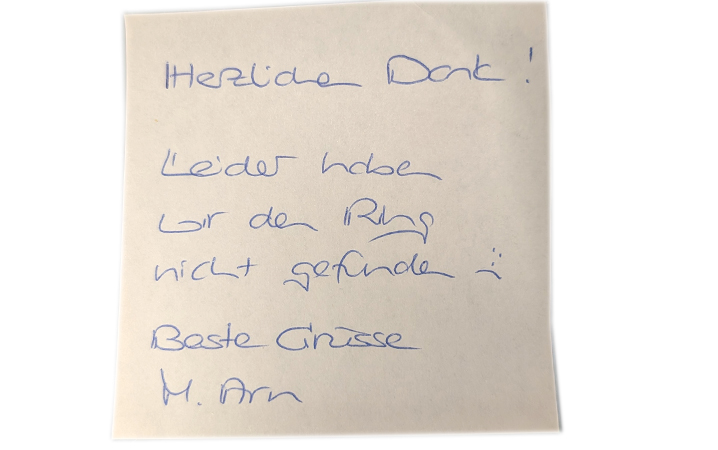 Herzlichen Dank!
Leider haben
wir den Ring
nicht gefunden :(
Beste Grüsse
M. Arn